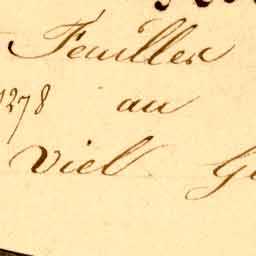 Feuiller
1278 au
Viel Ge